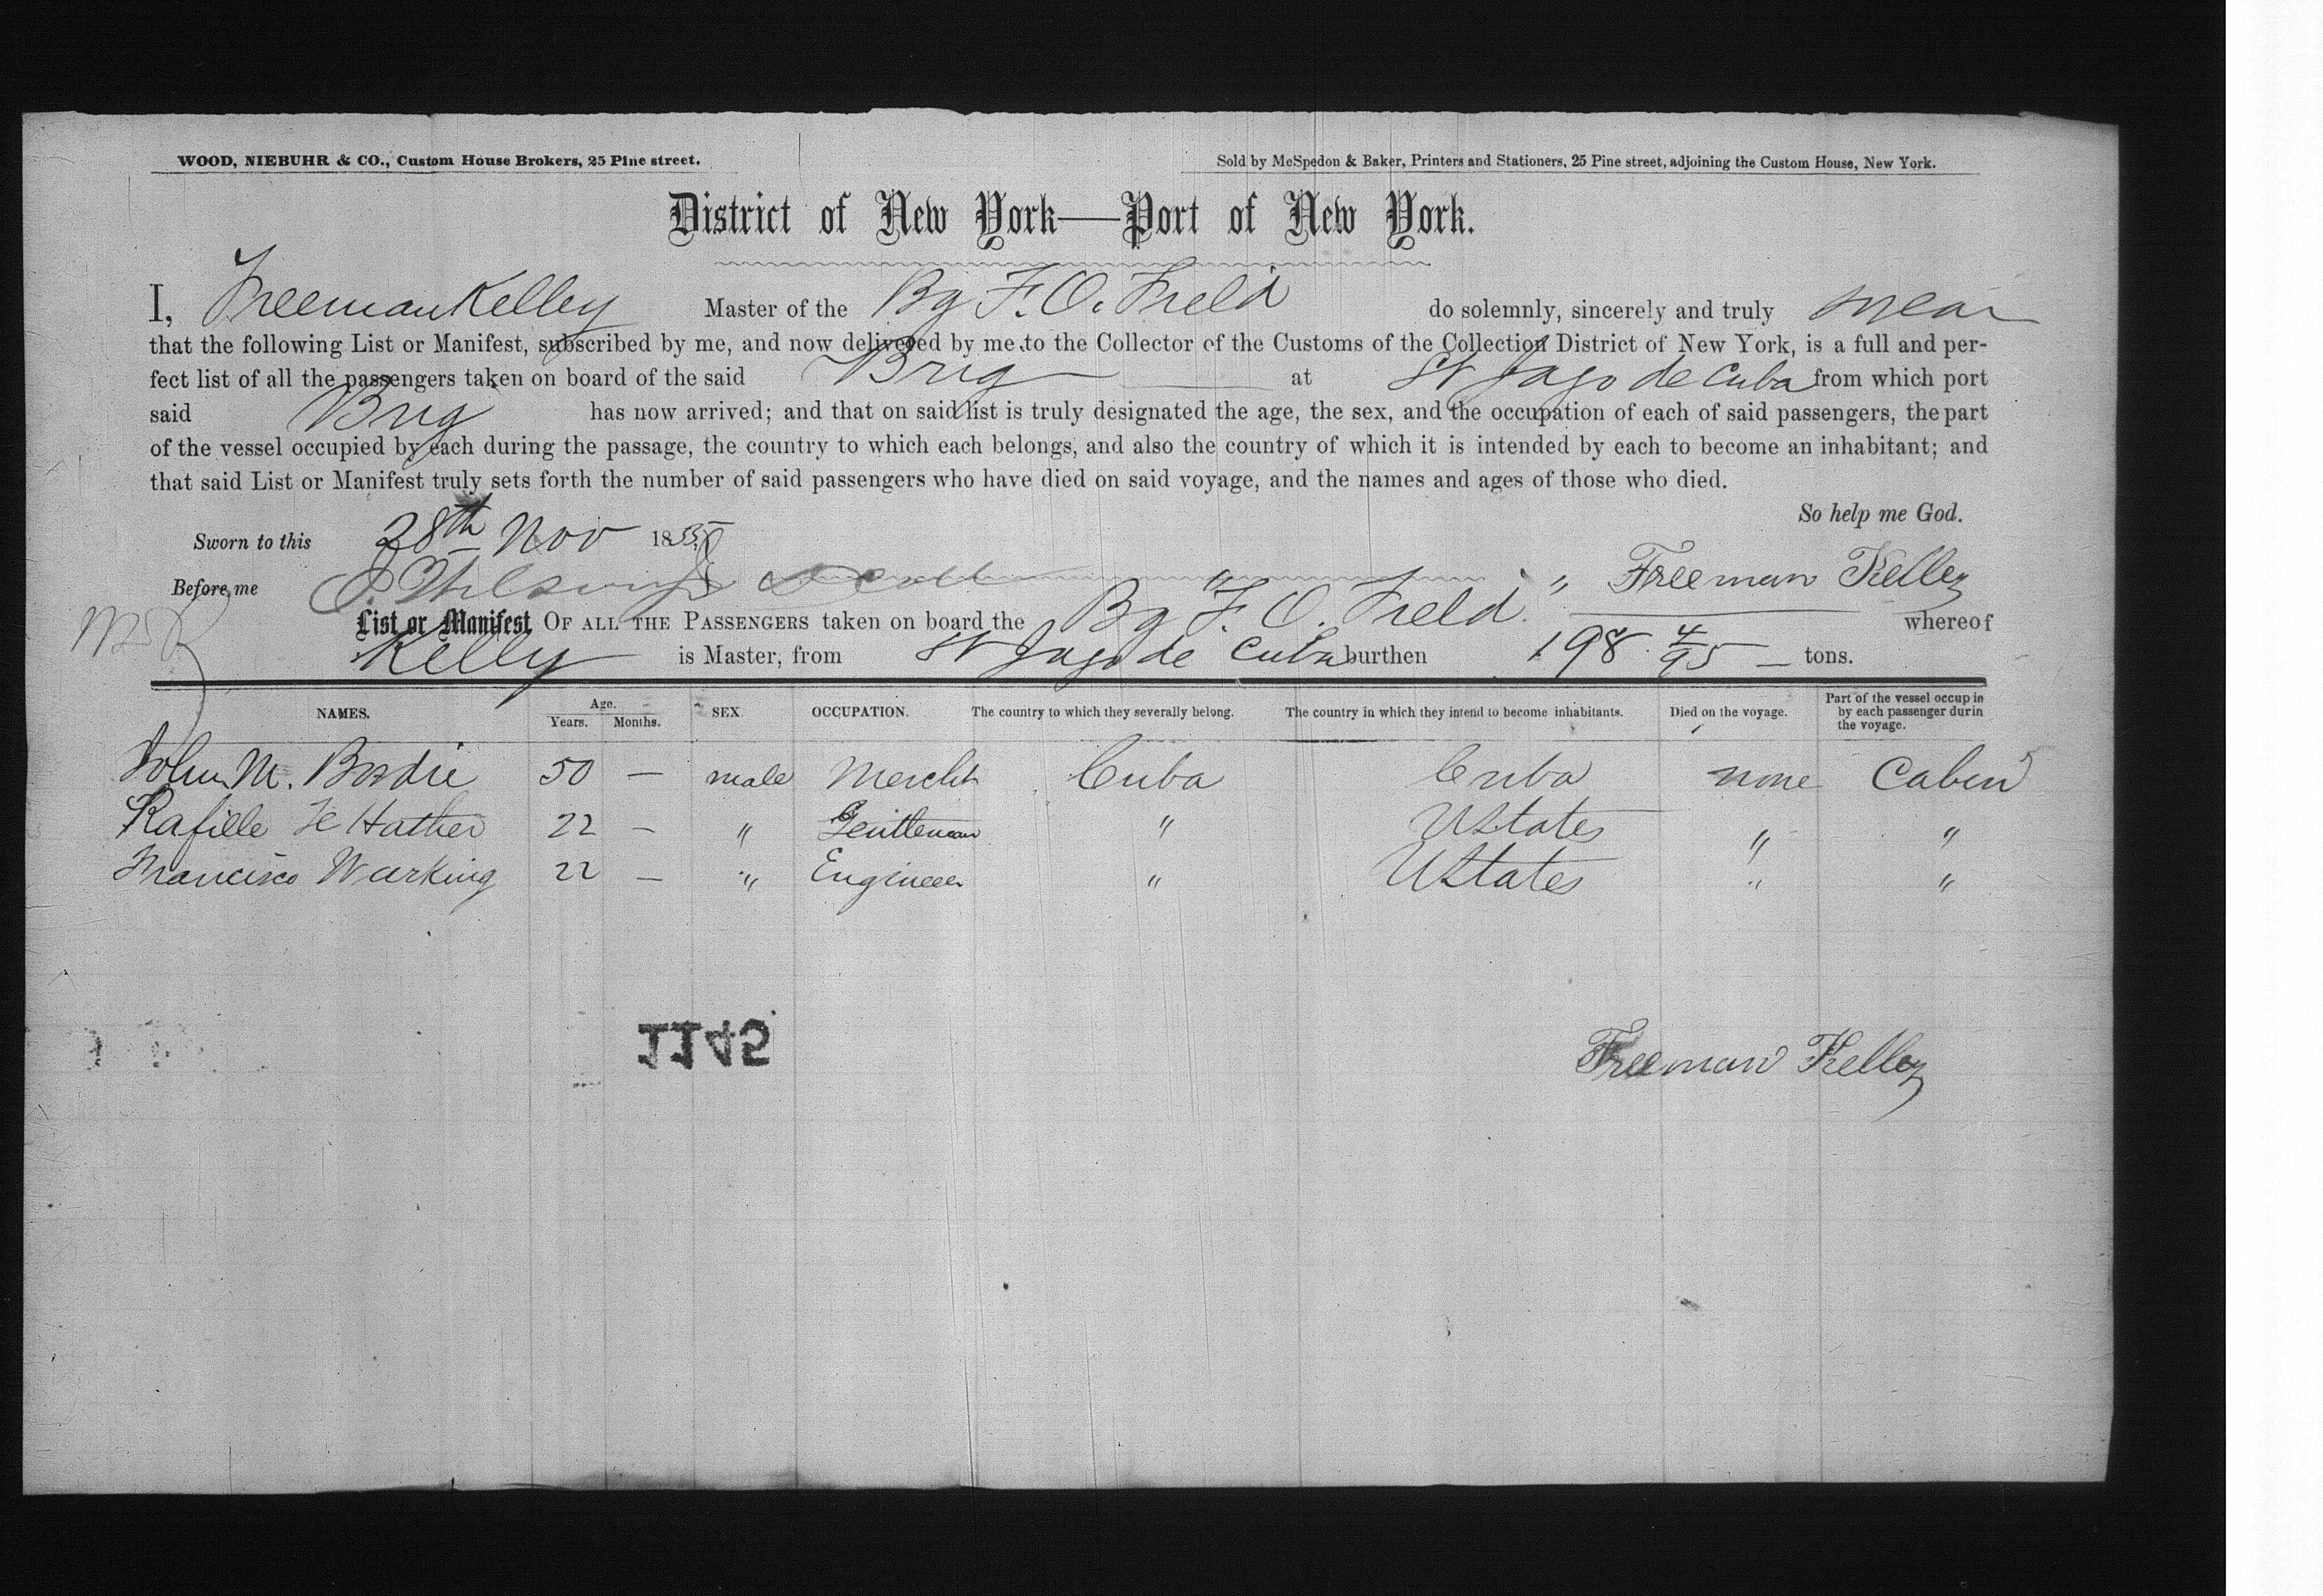 WOOD, NIEBUHR & CO., Custom House Brokers, 25 Pine street.
Sold by McSpedon & Baker, Printers and Stationers, 25 Pine street, adjoining the Custom House, New York.
District of New York—Port of New York.
I, Freeman Kelley Master of the Bg F. O. Field do solemnly, sincerely and truly swear
that the following List or Manifest, subscribed by me, and now delivered by me to the Collector of the Customs of the Collection District of New York, is a full and per-
fect list of all the passengers taken on board of the said Brig at St Jago de Cuba from which port
said Brig has now arrived; and that on said list is truly designated the age, the sex, and the occupation of each of said passengers, the part
of the vessel occupied by each during the passage, the country to which each belongs, and also the country of which it is intended by each to become an inhabitant; and
that said List or Manifest truly sets forth the number of said passengers who have died on said voyage, and the names and ages of those who died.
So help me God.
Sworn to this 28th Nov 1855
Before me " " Freeman Kelley
List or Manifest OF ALL THE PASSENGERS taken on board the Bg F. O. Field whereof
Kelly is Master, from St Jago de Cuba burthen 198 4/95 tons.
NAMES. Age. Years. Months. SEX. OCCUPATION. The country to which they severally belong. The country in which they intend to become inhabitants. Died on the voyage. Part of the vessel occup in by each passenger durin the voyage.
John M. 50 — male Mercht Cuba Cuba none Cabin
22 — " Gentleman " UStates " "
Francisco 22 — " Engineer " UStates " "
1145
Freeman Kelley